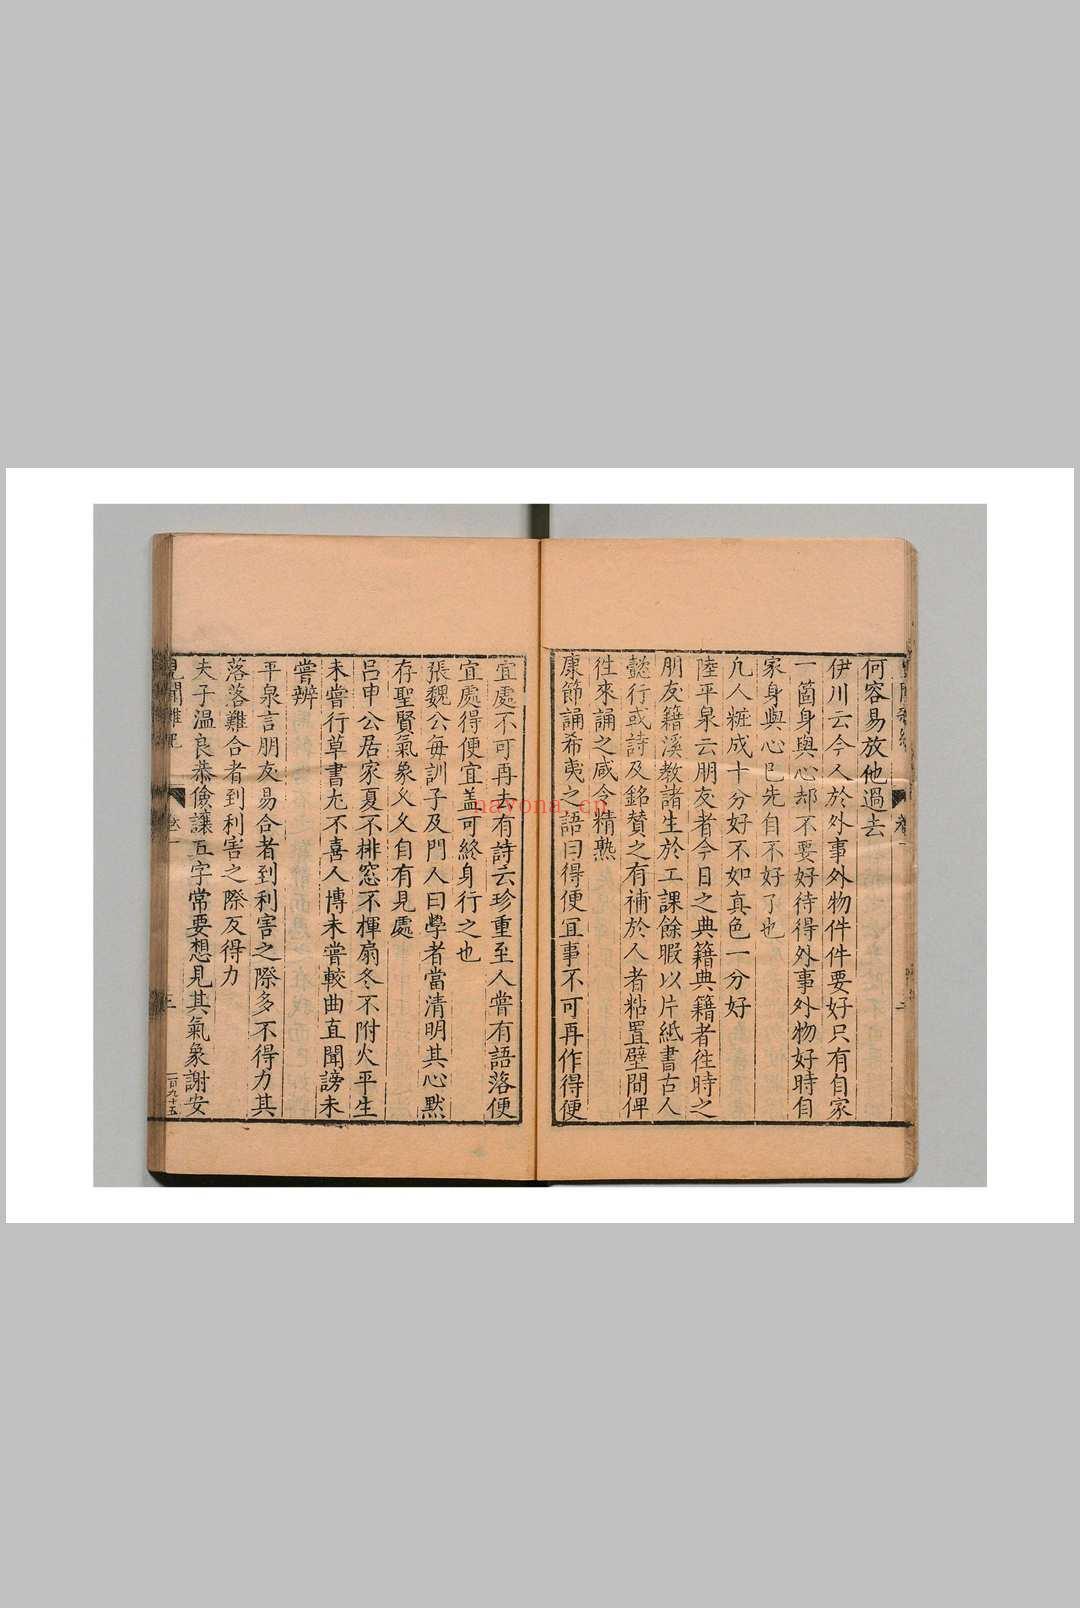 何容易放他過去
伊川云今人於外事外物件件要好只有自家
一箇身與心却不要好待得外事外物好時自
家身與心已先自不好了也
凢人粧成十分好不如真色一分好
陸平泉云朋友者今日之典籍典籍者徃時之
朋友籍溪教諸生於工課餘暇以片紙書古人
懿行或詩及銘賛之有補於人者粘置壁間俾
徃來誦之咸令精熟
康節誦希夷之語曰得便冝事不可再作得便
宜處不可再去有詩云珍重至人嘗有語落便
宜處得便宜盖可終身行之也
張魏公每訓子及門人曰學者當清明其心默
存聖賢氣象久久自有見處
吕申公居家夏不排窓不揮扇冬不附火平生
未嘗行草書尤不喜人博未嘗較曲直聞謗未
嘗辨
平泉言朋友易合者到利害之際多不得力其
落落難合者到利害之際反得力
夫子溫良恭儉讓五字常要想見其氣象謝安
見聞雜記
卷一
三
一百九十五
nayona.cn